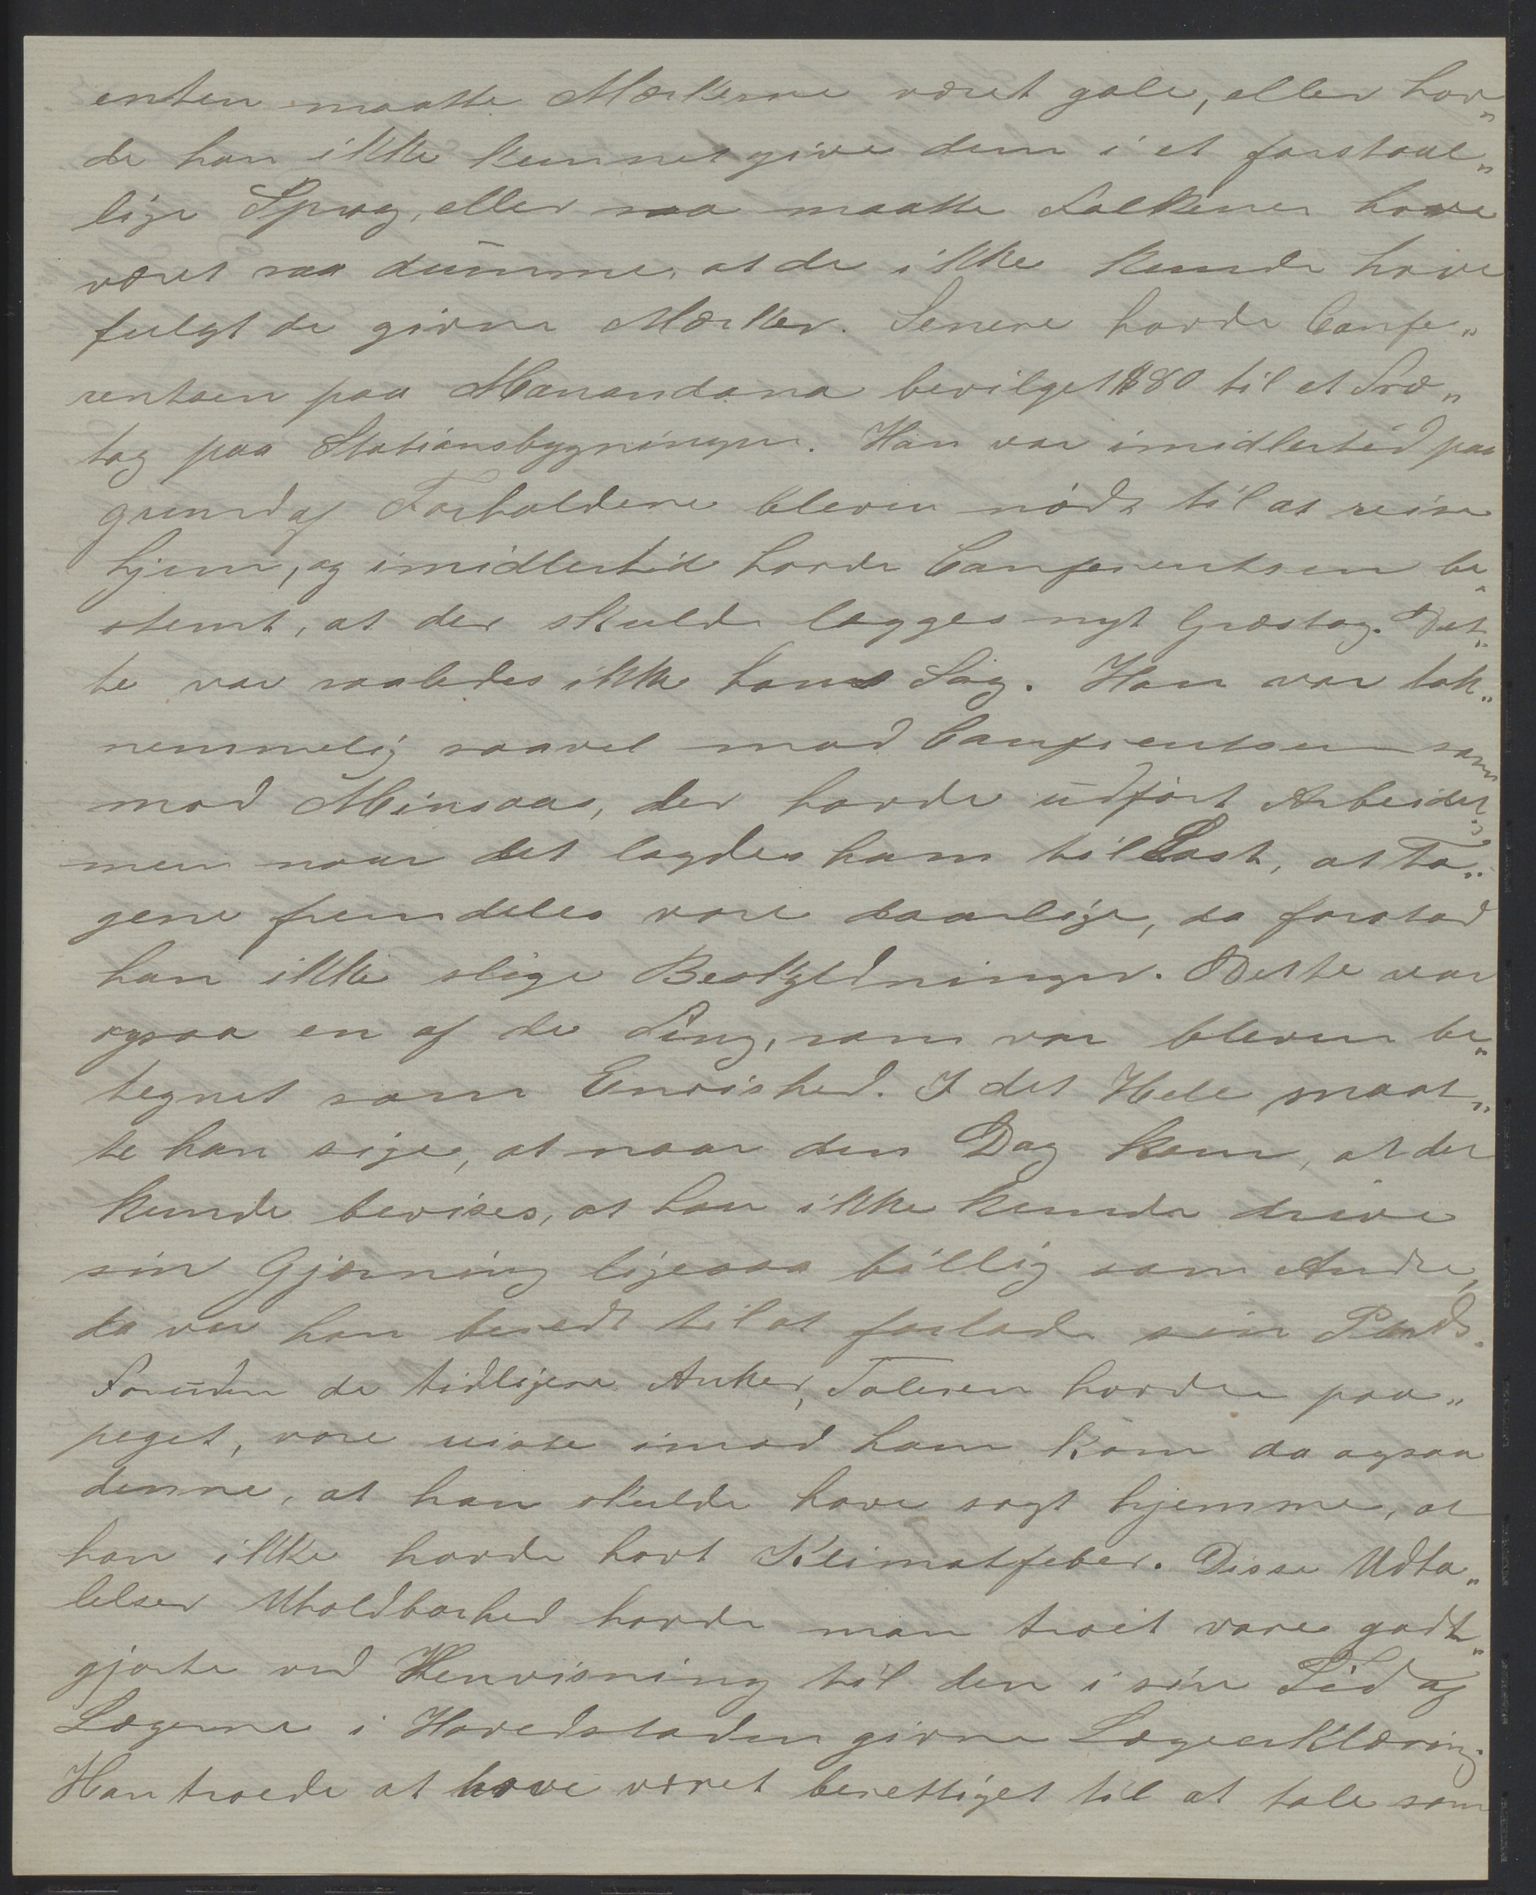 enten maatte Mærkerne været gale, eller hav„
de han ikke kunnet give dem i et forstaae„
lige Sprog, eller saa maatte Folkene have
været saa dumme, at de ikke kunde have
fulgt de givne Mærker. Senere havde Confe„
rentsen paa Manandona bevilget $80 til et Træ„
tag paa Stationsbygningen. Han var imidlertid paa
grund af Forholdene bleven nødt til at reise
hjem, og imidlertid havde Conferentsen be„
stemt, at der skulde lægges nyt Græstag. Det„
te var saaledes ikke hans Sag. Han var tak„
nemmelig saavel mod Conferentsen som
mod Minsaas, der havde udført Arbeidet,
men naar det lagdes ham til Last, at Ta„
gene fremdeles vare daarlige, da forstod
han ikke slige Beskyldninger. Dette var
ogsaa en af de Ting, som var bleven be„
tegnet som Enrished. I det Hele maat„
te han sige, at naar den Dag kom, at det
kunde bevises, at han ikke kunde drive
sin Gjerning ligesaa billig som Andre,
da var han beredt til at forlade sin Plads.
Foruden de tidligere Anker, Taleren havde paa„
peget, vare reiste imod ham kom da ogsaa
denne, at han skulde have sagt hjemme, at
han ikke havde havt Klimatfeber. Disse Udta„
lelser Uholdbarhed havde man troet vare godt„
gjorte ved Henvisning til den i sin Tid af
Lægerne i Hovedstaden givne Lægeerklæring.
Han troede at have været berettiget til at tale som